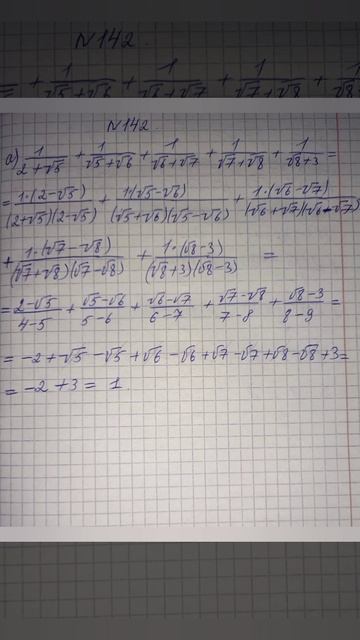 N 142.
+ 1/(√5+√6) + 1/(√6+√7) + 1/(√7+√8) +
N 142.
а) 1/(2+√5) + 1/(√5+√6) + 1/(√6+√7) + 1/(√7+√8) + 1/(√8+3) =
= 1·(2-√5)/((2+√5)(2-√5)) + 1(√5-√6)/((√5+√6)(√5-√6)) + 1·(√6-√7)/((√6+√7)(√6-√7))
+ 1·(√7-√8)/((√7+√8)(√7-√8)) + 1·(√8-3)/((√8+3)(√8-3)) =
= (2-√5)/(4-5) + (√5-√6)/(5-6) + (√6-√7)/(6-7) + (√7-√8)/(7-8) + (√8-3)/(8-9) =
= -2+√5-√5+√6-√6+√7-√7+√8-√8+3=
= -2+3= 1.